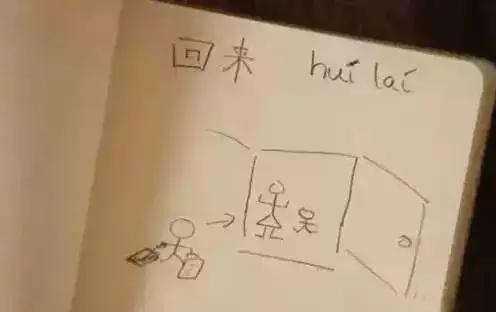 回来 huí laí